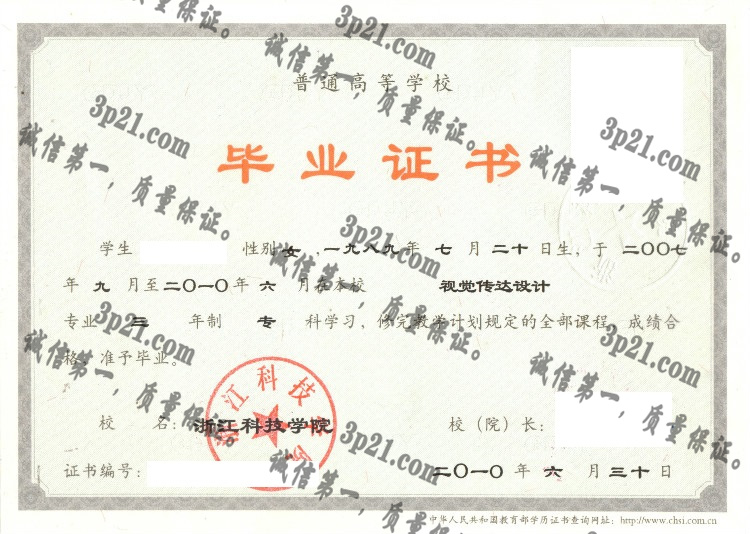 普通高等学校
毕业证书
学生 性别 女 ,一九八九年 七 月 二十 日生,于 二〇〇七
年 九 月至二〇一〇年 六 月在本校 视觉传达设计
专业 三 年制 专 科学习,修完教学计划规定的全部课程,成绩合
格,准予毕业。
校 名:浙江科技学院
校(院)长:
证书编号:
二〇一〇 年 六 月 三十 日
中华人民共和国教育部学历证书查询网址:http://www.chsi.com.cn
浙江科技学院
3p21.com
诚信第一,质量保证。
3p21.com
诚信第一,质量保证。
3p21.com
诚信第一,质量保证。
3p21.com
诚信第一,质量保证。
3p21.com
诚信第一,质量保证。
3p21.com
诚信第一,质量保证。
3p21.com
诚信第一,质量保证。
质量保证。